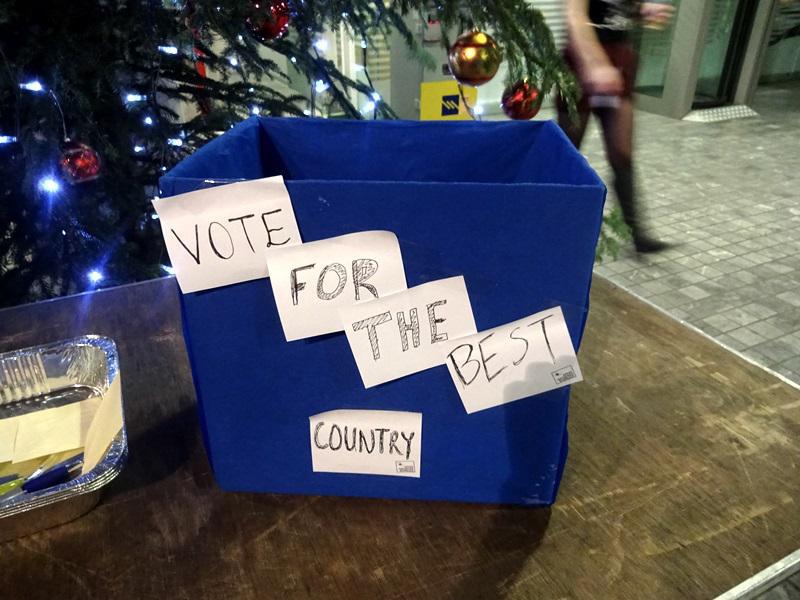 VOTE
FOR
THE
BEST
COUNTRY